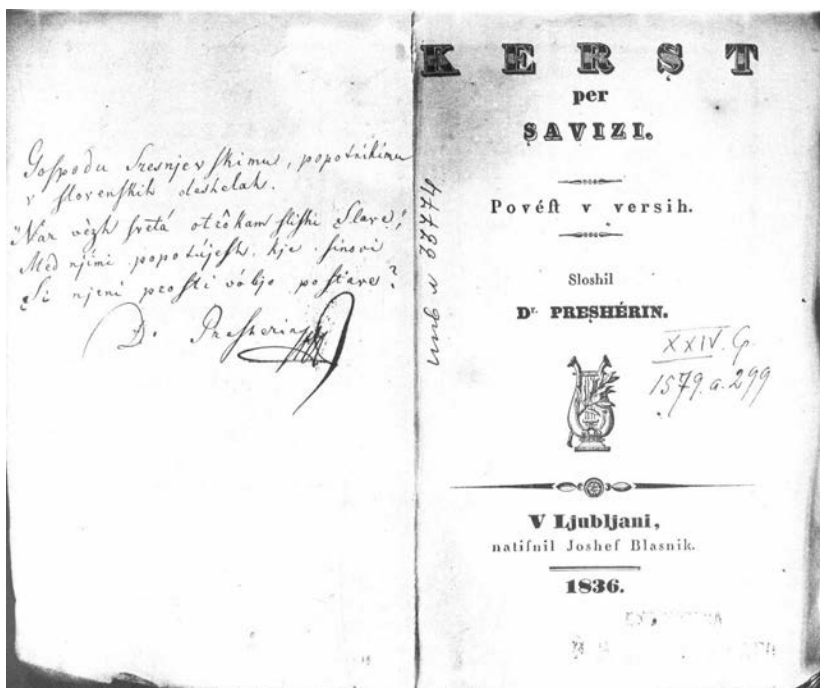 Gospodu Sresnjevſkimu, popotnikimu
v ſlovenſkih deshelah.
"Nar vèzh ſvetá otrôkam ſliſhi Slave;
Med njimi popotújeſh, kje ſinovi
Si njení proſti vóljo poſtave?
Dr. Preſherin
инв N 33774
KERST
per
SAVIZI.
Povéſt v versih.
Sloshil
Dr. PRESHÉRIN.
XXIV. G.
1579.a.299
V Ljubljani,
natiſnil Joshef Blasnik.
1836.